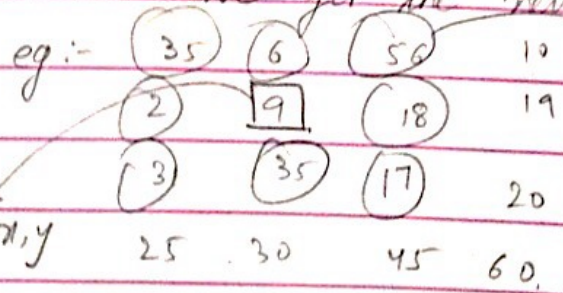 eg :- 35 6 56 10
2 9 18 19
3 35 17 20
x,y 25 30 45 60.